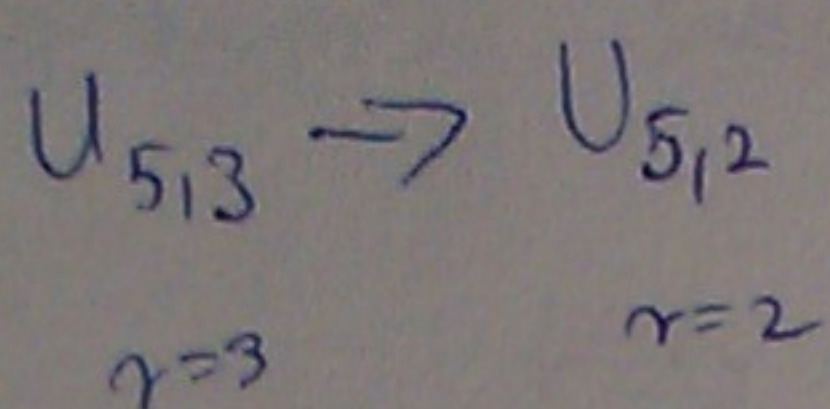 U₅,₃ → U₅,₂
r=3 r=2